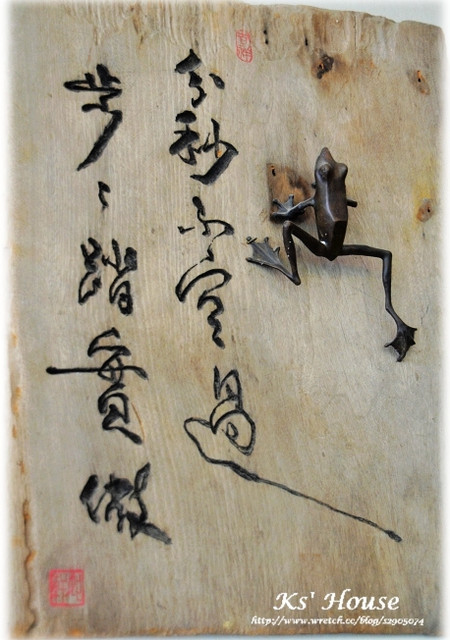 分秒不空過
步〻踏實做
Ks' House
http://www.wretch.cc/blog/s2905074